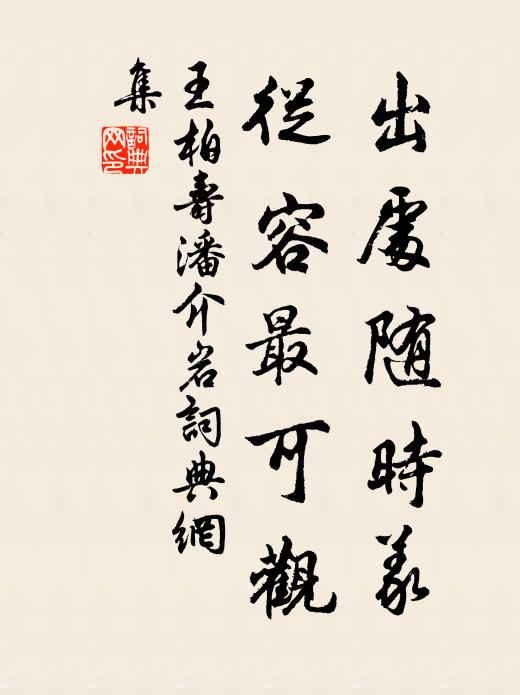 出處随時義
從容最可觀
王柏壽潘介岩詞典網
集
詞典網印